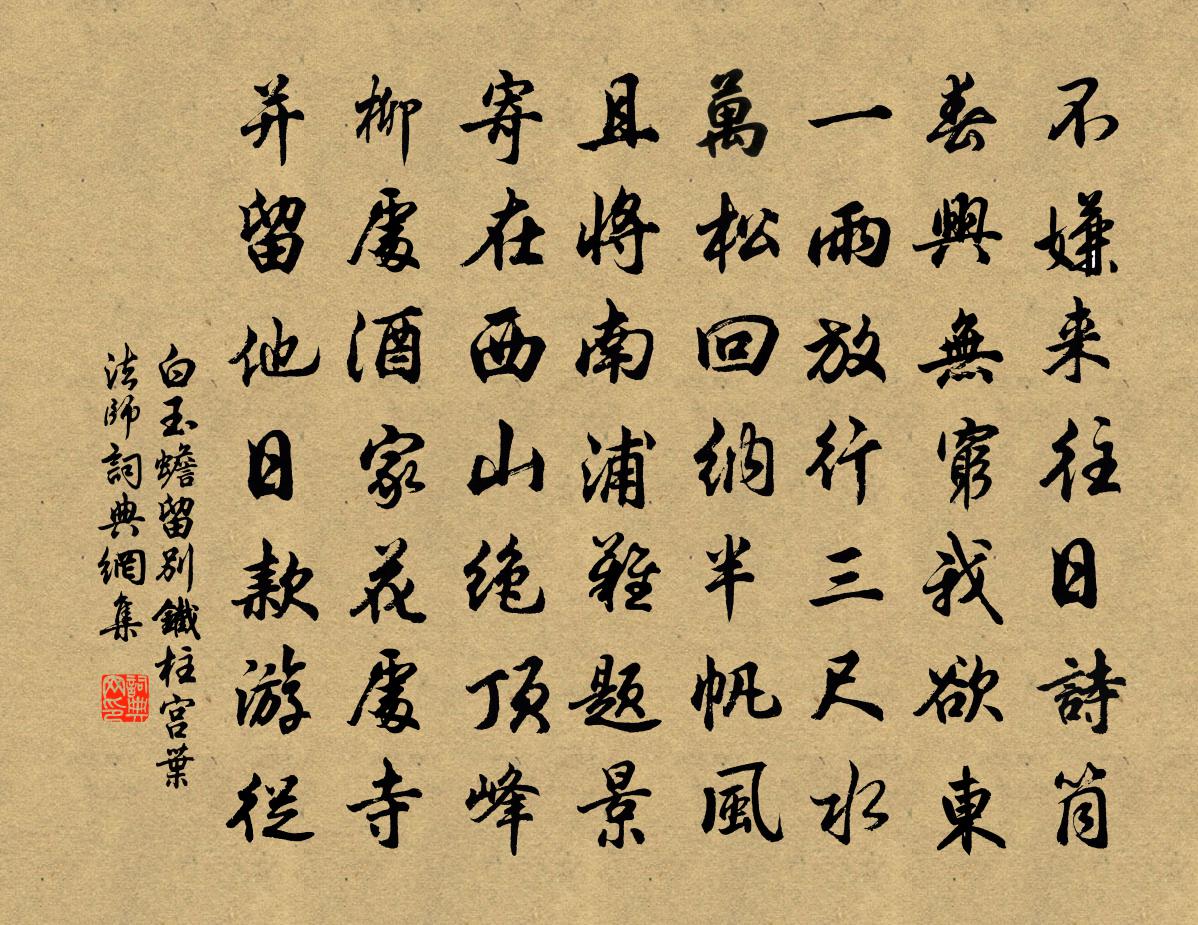 不嫌来往日詩筒
春興無窮我欲東
一雨放行三尺水
萬松回納半帆風
且將南浦難題景
寄在西山絶頂峰
柳處酒家花處寺
并留他日款游從
白玉蟾留別鐵柱宮葉
法師詞典網集
詞典
网印